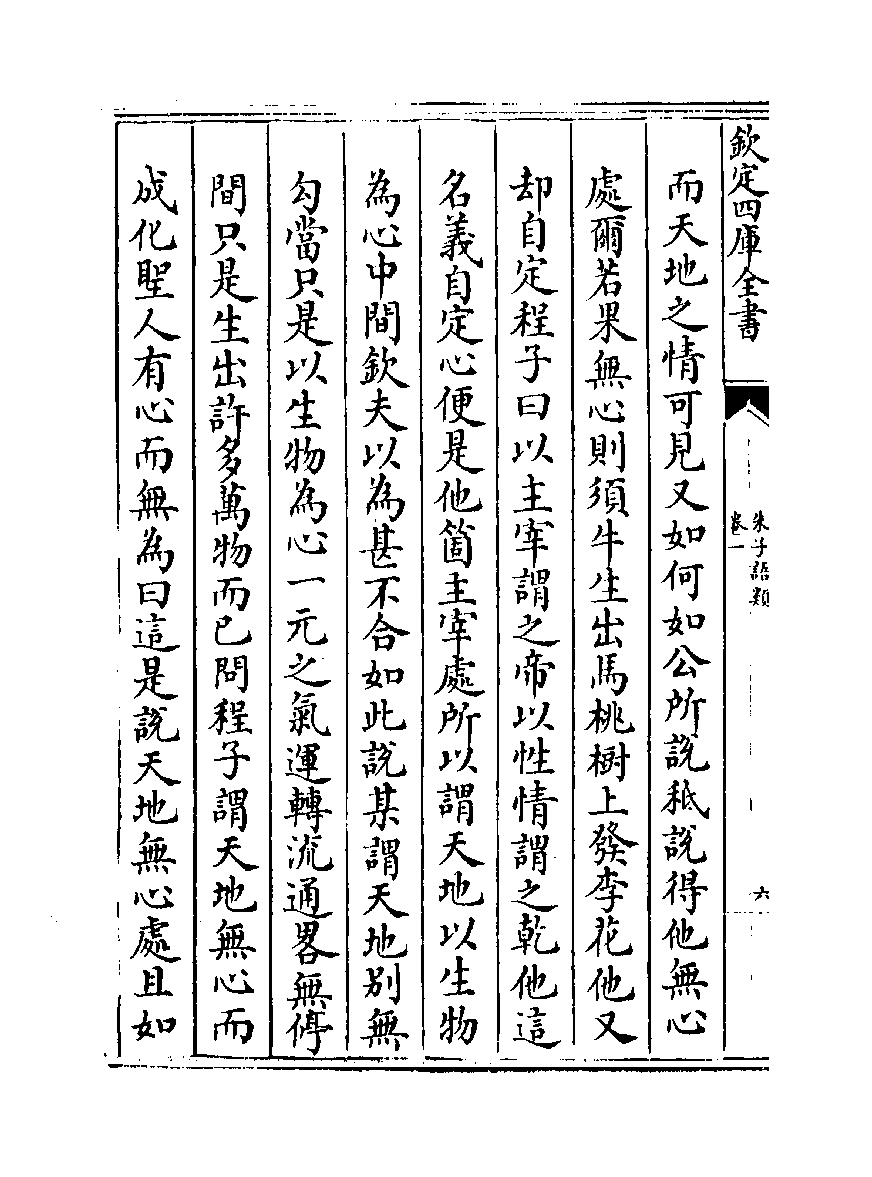 欽定四庫全書
朱子語類
卷一
六
而天地之情可見又如何如公所說秪說得他無心
處爾若果無心則須牛生出馬桃樹上發李花他又
却自定程子曰以主宰謂之帝以性情謂之乾他這
名義自定心便是他箇主宰處所以謂天地以生物
為心中間欽夫以為甚不合如此說某謂天地別無
勾當只是以生物為心一元之氣運轉流通畧無停
間只是生出許多萬物而已問程子謂天地無心而
成化聖人有心而無為曰這是說天地無心處且如